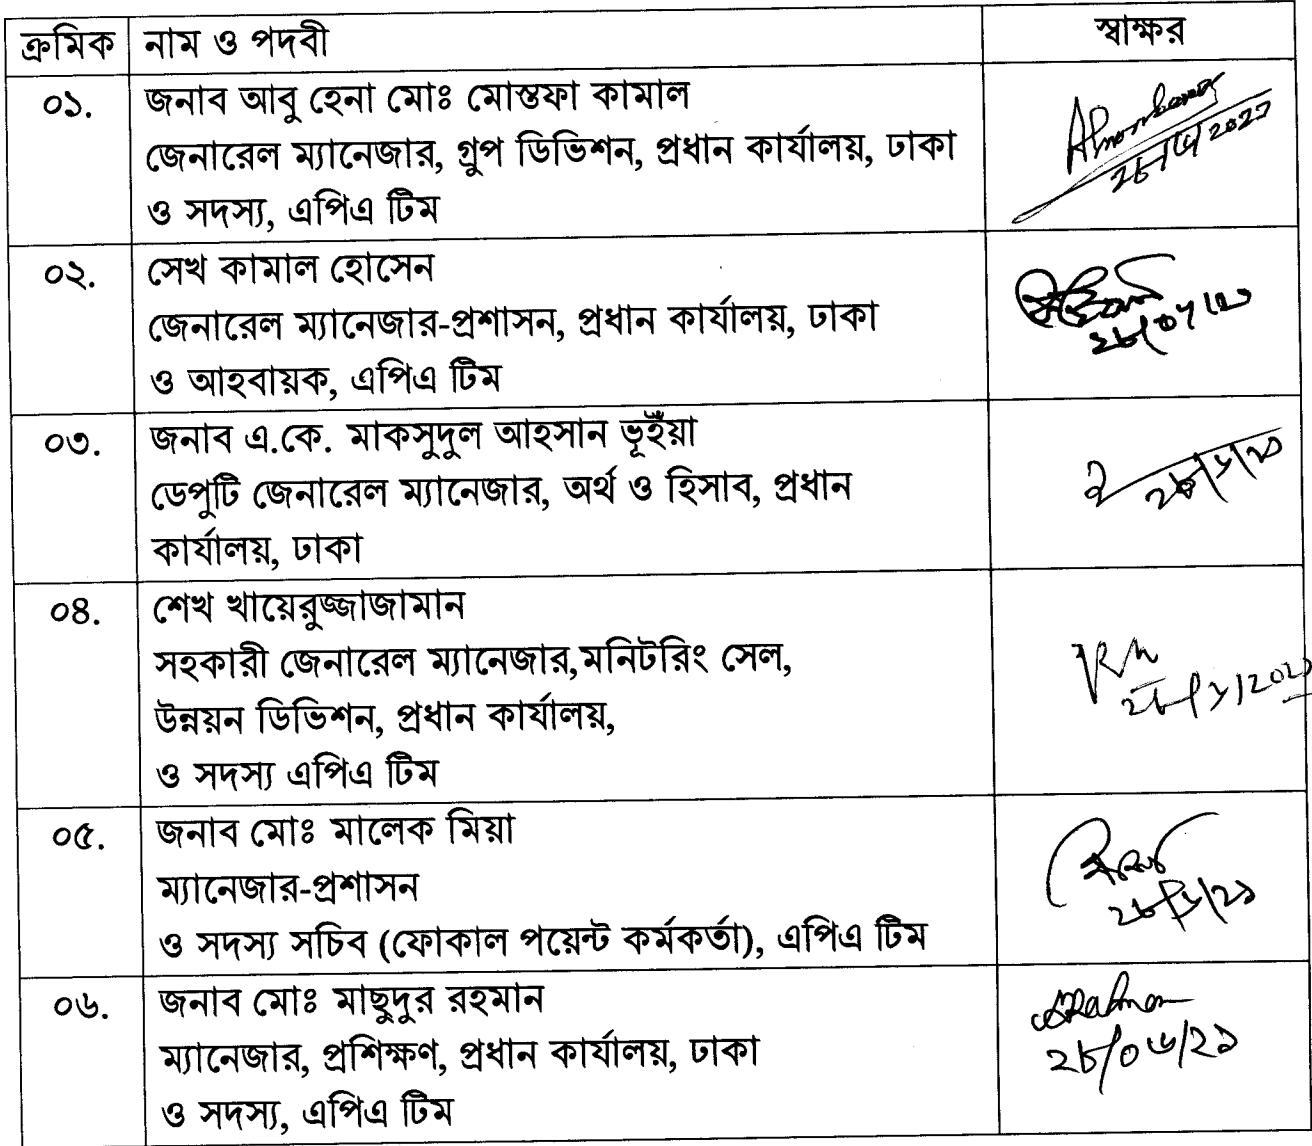 ক্রমিক নাম ও পদবী স্বাক্ষর
০১. জনাব আবু হেনা মোঃ মোস্তফা কামাল
জেনারেল ম্যানেজার, গ্রুপ ডিভিশন, প্রধান কার্যালয়, ঢাকা
ও সদস্য, এপিএ টিম
০২. সেখ কামাল হোসেন
জেনারেল ম্যানেজার-প্রশাসন, প্রধান কার্যালয়, ঢাকা
ও আহবায়ক, এপিএ টিম
০৩. জনাব এ.কে. মাকসুদুল আহসান ভূইঁয়া
ডেপুটি জেনারেল ম্যানেজার, অর্থ ও হিসাব, প্রধান
কার্যালয়, ঢাকা
০৪. শেখ খায়েরুজ্জাজামান
সহকারী জেনারেল ম্যানেজার,মনিটরিং সেল,
উন্নয়ন ডিভিশন, প্রধান কার্যালয়,
ও সদস্য এপিএ টিম
০৫. জনাব মোঃ মালেক মিয়া
ম্যানেজার-প্রশাসন
ও সদস্য সচিব (ফোকাল পয়েন্ট কর্মকর্তা), এপিএ টিম
০৬. জনাব মোঃ মাছুদুর রহমান
ম্যানেজার, প্রশিক্ষণ, প্রধান কার্যালয়, ঢাকা
২৮/০৬/২১
ও সদস্য, এপিএ টিম